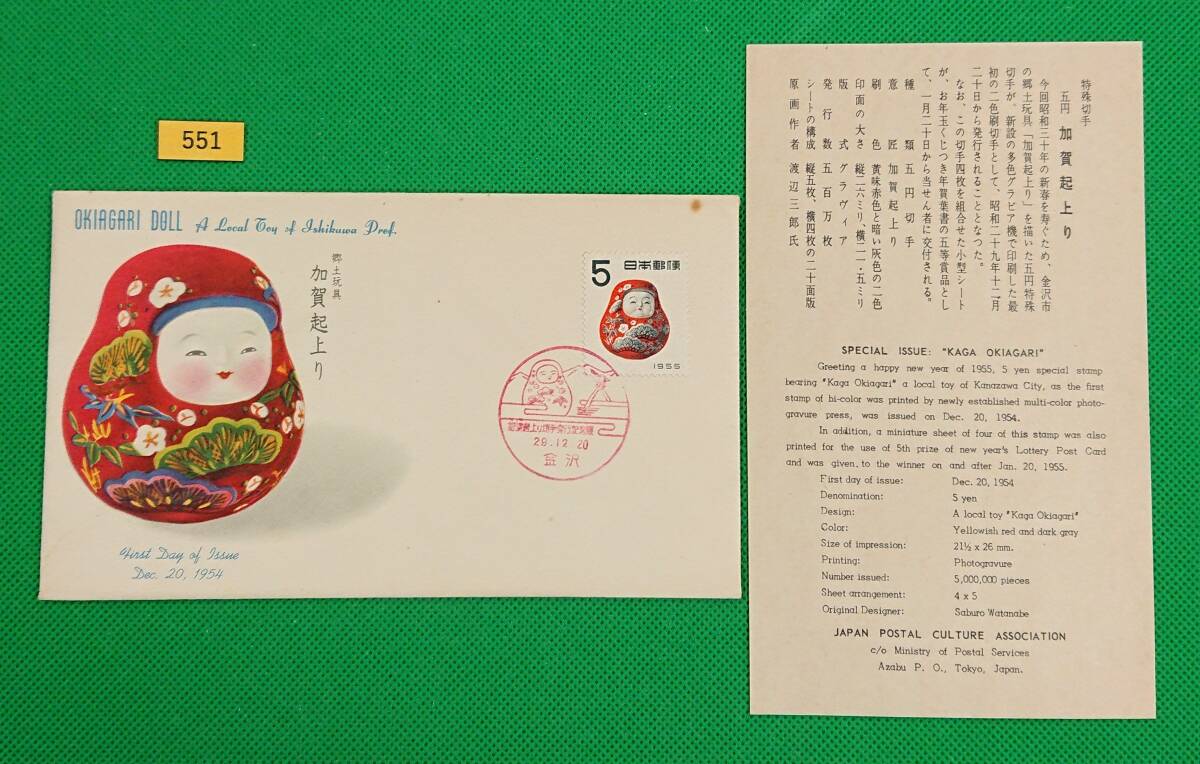 551
OKIAGARI DOLL A Local Toy of Ishikawa Pref.
郷土玩具
加賀起上り
First Day of Issue
Dec. 20, 1954
5 日本郵便
1955
29.12.20
金沢
特殊切手
五円 加賀起上り
今回昭和三十年の新春を寿ぐため、金沢市
の郷土玩具「加賀起上り」を描いた五円特殊
切手が、新設の多色グラビア機で印刷した最
初の二色刷切手として、昭和二十九年十二月
二十日から発行されることとなつた。
なお、この切手四枚を組合せた小型シート
が、お年玉くじつき年賀葉書の五等賞品とし
て、一月二十日から当せん者に交付される。
種類 五円切手
意匠 加賀起上り
刷色 黄味赤色と暗い灰色の二色
印面の大さ 縦二六ミリ、横二一・五ミリ
版式 グラヴィア
発行数 五百万枚
シートの構成 縦五枚、横四枚の二十面版
原画作者 渡辺三郎氏
SPECIAL ISSUE: "KAGA OKIAGARI"
Greeting a happy new year of 1955, 5 yen special stamp
bearing "Kaga Okiagari" a local toy of Kanazawa City, as the first
stamp of bi-color was printed by newly established multi-color photo-
gravure press, was issued on Dec. 20, 1954.
In addition, a miniature sheet of four of this stamp was also
printed for the use of 5th prize of new year's Lottery Post Card
and was given, to the winner on and after Jan. 20, 1955.
First day of issue: Dec. 20, 1954
Denomination: 5 yen
Design: A local toy "Kaga Okiagari"
Color: Yellowish red and dark gray
Size of impression: 21½ x 26 mm.
Printing: Photogravure
Number issued: 5,000,000 pieces
Sheet arrangement: 4 x 5
Original Designer: Saburo Watanabe
JAPAN POSTAL CULTURE ASSOCIATION
c/o Ministry of Postal Services
Azabu P. O., Tokyo, Japan.